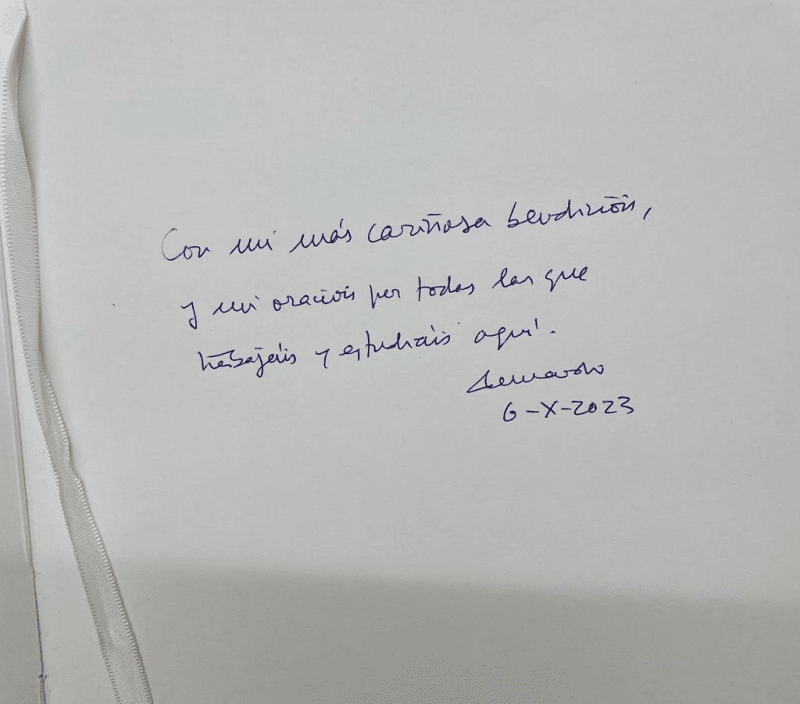 Con mi más cariñosa bendición,
y mi oración por todas las que
trabajáis y estudiáis aquí.
6-X-2023